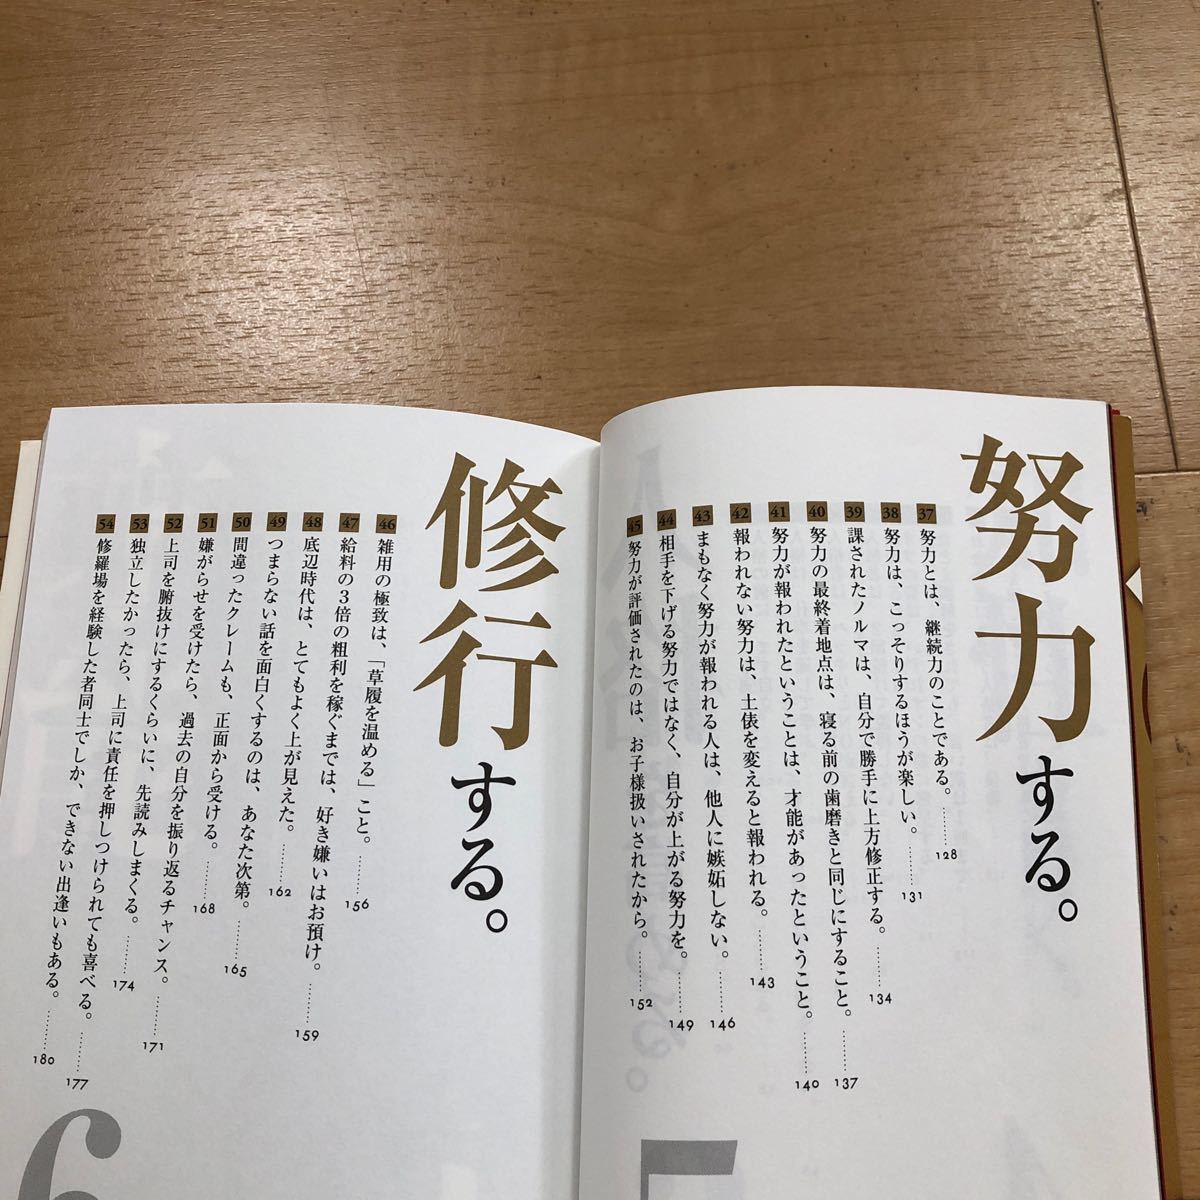 努力する。
37 努力とは、継続力のことである。……128
38 努力は、こっそりするほうが楽しい。……131
39 課されたノルマは、自分で勝手に上方修正する。……134
40 努力の最終着地点は、寝る前の歯磨きと同じにすること。……137
41 努力が報われたということは、才能があったということ。……140
42 報われない努力は、土俵を変えると報われる。……143
43 まもなく努力が報われる人は、他人に嫉妬しない。……146
44 相手を下げる努力ではなく、自分が上がる努力を。……149
45 努力が評価されたのは、お子様扱いされたから。……152
5
修行する。
46 雑用の極致は、「草履を温める」こと。……156
47 給料の3倍の粗利を稼ぐまでは、好き嫌いはお預け。……159
48 底辺時代は、とてもよく上が見えた。……162
49 つまらない話を面白くするのは、あなた次第。……165
50 間違ったクレームも、正面から受ける。……168
51 嫌がらせを受けたら、過去の自分を振り返るチャンス。……171
52 上司を腑抜けにするくらいに、先読みしまくる。……174
53 独立したかったら、上司に責任を押しつけられても喜べる。……177
54 修羅場を経験した者同士でしか、できない出逢いもある。……180
6